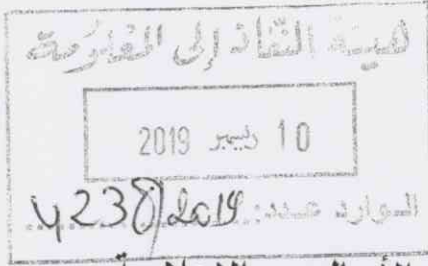 هيئة النّفاذ إلى المعلومة
10 ديسمبر 2019
الوارد عدد: 4238/2019